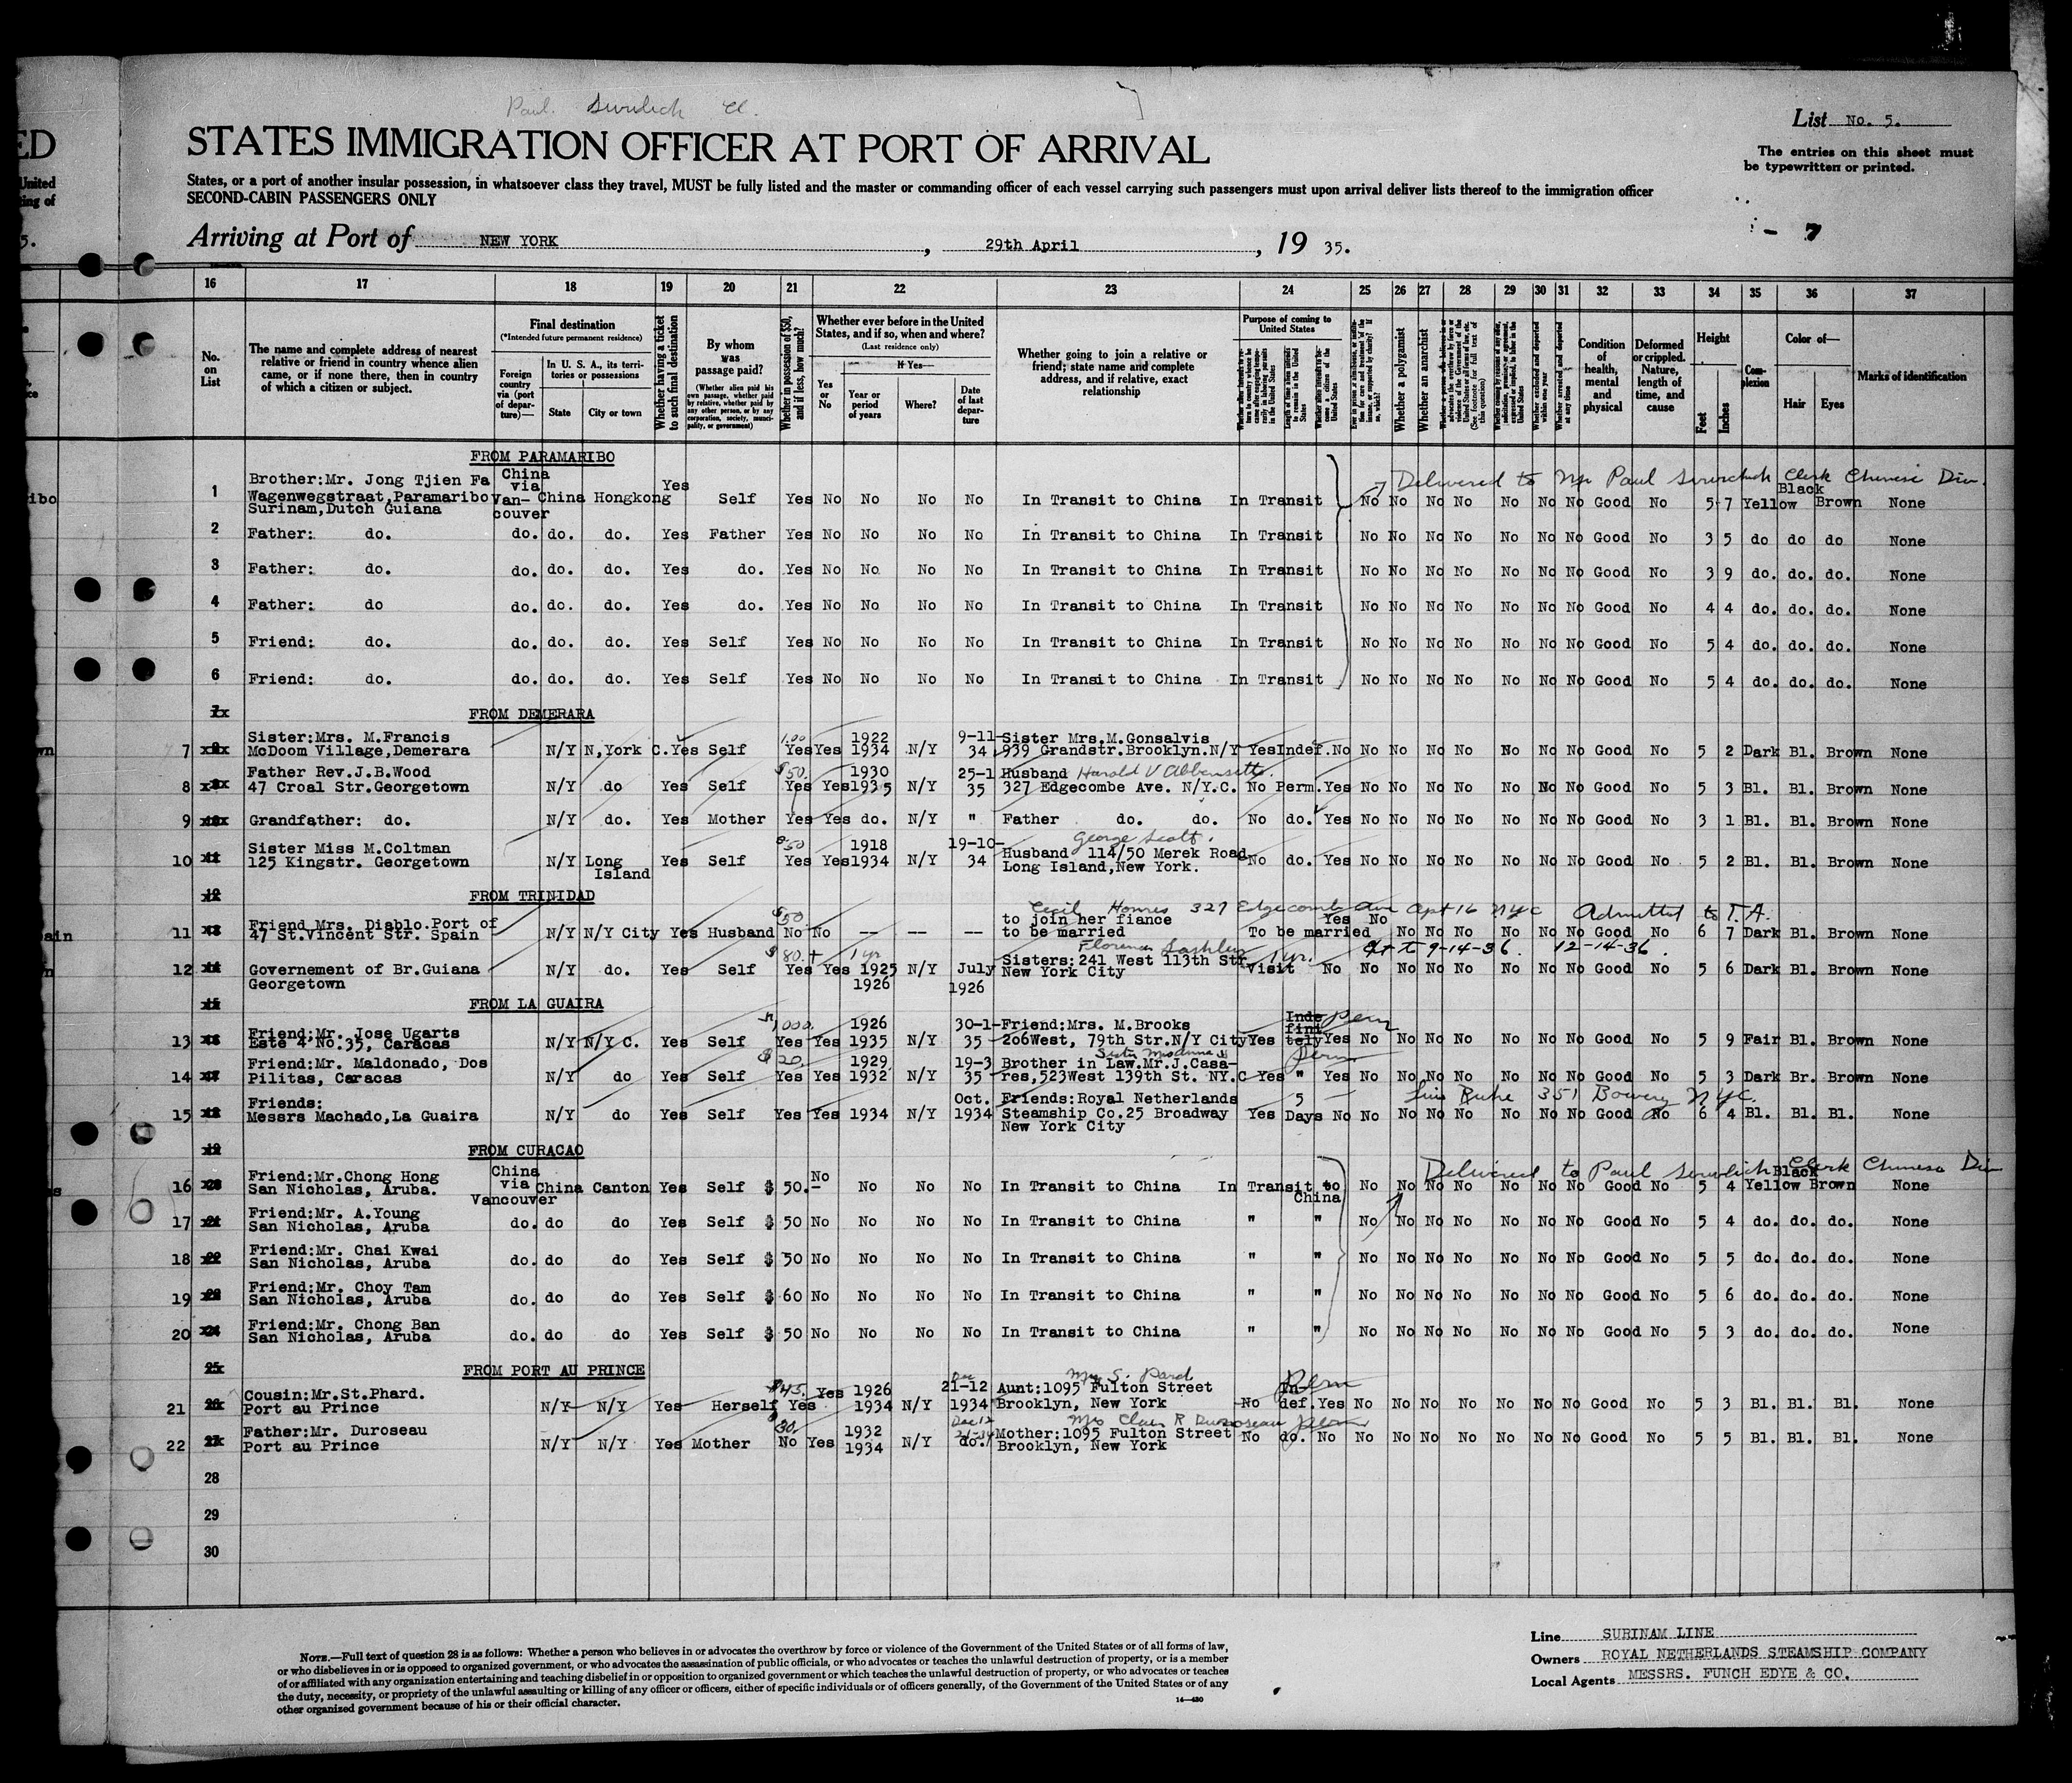 Paul
ED
STATES IMMIGRATION OFFICER AT PORT OF ARRIVAL
List No. 5.
The entries on this sheet must
be typewritten or printed.
United
ing of
States, or a port of another insular possession, in whatsoever class they travel, MUST be fully listed and the master or commanding officer of each vessel carrying such passengers must upon arrival deliver lists thereof to the immigration officer
SECOND-CABIN PASSENGERS ONLY
5.
- 7
Arriving at Port of NEW YORK, 29th April, 19 35.
16 17 18 19 20 21 22 23 24 25 26 27 28 29 30 31 32 33 34 35 36 37
No. on List
The name and complete address of nearest relative or friend in country whence alien came, or if none there, then in country of which a citizen or subject.
Final destination
(*Intended future permanent residence)
Foreign country via (port of departure)—
In U. S. A., its territories or possessions
State
City or town
Whether having a ticket to such final destination
By whom was passage paid?
(Whether alien paid his own passage, whether paid by relative, whether paid by any other person, or by any corporation, society, municipality, or government)
Whether in possession of $50, and if less, how much?
Whether ever before in the United States, and if so, when and where?
(Last residence only)
If Yes—
Yes or No
Year or period of years
Where?
Date of last departure
Whether going to join a relative or friend; state name and complete address, and if relative, exact relationship
Purpose of coming to United States
Whether a polygamist
Whether an anarchist
Condition of health, mental and physical
Deformed or crippled. Nature, length of time, and cause
Height
Feet
Inches
Complexion
Color of—
Hair
Eyes
Marks of identification
FROM PARAMARIBO
Delivered to Mr Paul Clerk Chinese Div.
1 Brother:Mr. Jong Tjien Fa Wagenwegstraat,Paramaribo Surinam,Dutch Guiana China via Van-couver China Hongkong Yes Self Yes No No No No In Transit to China In Transit No No No No No No No Good No 5 7 Yellow Black Brown None
2 Father: do. do. do. do. Yes Father Yes No No No No In Transit to China In Transit No No No No No No No Good No 3 5 do do do None
3 Father: do. do. do. do. Yes do. Yes No No No No In Transit to China In Transit No No No No No No No Good No 3 9 do. do. do. None
4 Father: do do. do. do. Yes do. Yes No No No No In Transit to China In Transit No No No No No No No Good No 4 4 do. do. do. None
5 Friend: do. do. do. do. Yes Self Yes No No No No In Transit to China In Transit No No No No No No No Good No 5 4 do. do. do. None
6 Friend: do. do. do. do. Yes Self Yes No No No No In Transit to China In Transit No No No No No No No Good No 5 4 do. do. do. None
FROM DEMERARA
7 Sister:Mrs. M.Francis McDoom Village,Demerara N/Y N,York C. Yes Self 100 Yes Yes 1922 1934 N/Y 9-11-34 Sister Mrs.M.Gonsalvis 939 Grandstr.Brooklyn.N/Y Yes Indef. No No No No No No No No Good No 5 2 Dark Bl. Brown None
8 Father Rev.J.B.Wood 47 Croal Str.Georgetown N/Y do Yes Self $50. Yes Yes 1930 1935 N/Y 25-1 35 Husband Harold V Abbensetts. 327 Edgecombe Ave. N/Y.C. No Perm. Yes No No No No No No No Good No 5 3 Bl. Bl. Brown None
9 Grandfather: do. N/Y do. Yes Mother Yes Yes do. N/Y " Father do. do. No do. Yes No No No No No No No Good No 3 1 Bl. Bl. Brown None
10 Sister Miss M.Coltman 125 Kingstr. Georgetown N/Y Long Island Yes Self $50 Yes Yes 1918 1934 N/Y 19-10-34 George Scott. Husband 114/50 Merek Road Long Island,New York. No do. Yes No No No No No No No Good No 5 2 Bl. Bl. Brown None
FROM TRINIDAD
Cecil 327 Edgecombe Ave Apt 16 NYC Admitted to T.A.
11 Friend Mrs. Diablo.Port of 47 St.Vincent Str. Spain N/Y N/Y City Yes Husband $50 No No -- -- -- to join her fiance to be married Yes No To be married No No No No No No Good No 6 7 Dark Bl. Brown None
9-14-36. 12-14-36.
12 Governement of Br.Guiana Georgetown N/Y do. Yes Self $80.+ Yes Yes 1 yr 1925 1926 N/Y July 1926 Florence Sisters:241 West 113th Str New York City 1 yr. Visit No No No No No No No No Good No 5 6 Dark Bl. Brown None
FROM LA GUAIRA
13 Friend:Mr. Jose Ugarts Este 4 No.35, Caracas N/Y N/Y C. Yes Self 1,000. Yes Yes 1926 1935 N/Y 30-1-35 Friend:Mrs. M.Brooks 206West, 79th Str.N/Y City Yes Indefinitely Perm Yes No No No No No No No Good No 5 9 Fair Bl. Brown None
14 Friend:Mr. Maldonado, Dos Pilitas, Caracas N/Y do Yes Self $20. Yes Yes 1929 1932 N/Y 19-3 35 Brother in Law.Mr.J.Casares,523West 139th St. NY.C Yes " Perm Yes No No No No No No No Good No 5 3 Dark Br. Brown None
351 Bowery NYC.
15 Friends: Messrs Machado,La Guaira N/Y do Yes Self Yes Yes 1934 N/Y Oct. 1934 Friends:Royal Netherlands Steamship Co.25 Broadway New York City Yes 5 Days No No No No No No No No Good No 6 4 Bl. Bl. Bl. None
FROM CURACAO
Delivered to Paul Clerk Chinese Div
16 Friend:Mr.Chong Hong San Nicholas, Aruba. China via Vancouver China Canton Yes Self $ 50. No No No No In Transit to China In Transit to China No No No No No No No Good No 5 4 Yellow Black Brown None
17 Friend:Mr. A.Young San Nicholas, Aruba do. do do Yes Self $ 50 No No No No In Transit to China " " No No No No No No No Good No 5 4 do. do. do. None
18 Friend:Mr. Chai Kwai San Nicholas, Aruba do. do do Yes Self $ 50 No No No No In Transit to China " " No No No No No No No Good No 5 5 do. do. do. None
19 Friend:Mr. Choy Tam San Nicholas, Aruba do. do do Yes Self $ 60 No No No No In Transit to China " " No No No No No No No Good No 5 6 do. do. do. None
20 Friend:Mr. Chong Ban San Nicholas, Aruba do. do do Yes Self $ 50 No No No No In Transit to China " " No No No No No No No Good No 5 3 do. do. do. None
FROM PORT AU PRINCE
21 Cousin:Mr.St.Phard. Port au Prince N/Y N/Y Yes Herself $45. Yes Yes 1926 1934 N/Y Dec 21-12 1934 Aunt:1095 Fulton Street Brooklyn, New York No Indef. Perm Yes No No No No No No No Good No 5 3 Bl. Bl. Bl. None
22 Father:Mr. Duroseau Port au Prince N/Y N/Y Yes Mother 30. No Yes 1932 1934 N/Y do. Mrs Clair R Duroseau Mother:1095 Fulton Street Brooklyn, New York No do. Perm No No No No No No No No Good No 5 5 Bl. Bl. Bl. None
28
29
30
NOTE.—Full text of question 28 is as follows: Whether a person who believes in or advocates the overthrow by force or violence of the Government of the United States or of all forms of law,
or who disbelieves in or is opposed to organized government, or who advocates the assassination of public officials, or who advocates or teaches the unlawful destruction of property, or is a member
of or affiliated with any organization entertaining and teaching disbelief in or opposition to organized government or which teaches the unlawful destruction of property, or who advocates or teaches
the duty, necessity, or propriety of the unlawful assaulting or killing of any officer or officers, either of specific individuals or of officers generally, of the Government of the United States or of any
other organized government because of his or their official character.
14—480
Line SURINAM LINE
Owners ROYAL NETHERLANDS STEAMSHIP COMPANY
Local Agents MESSRS. FUNCH EDYE & CO.